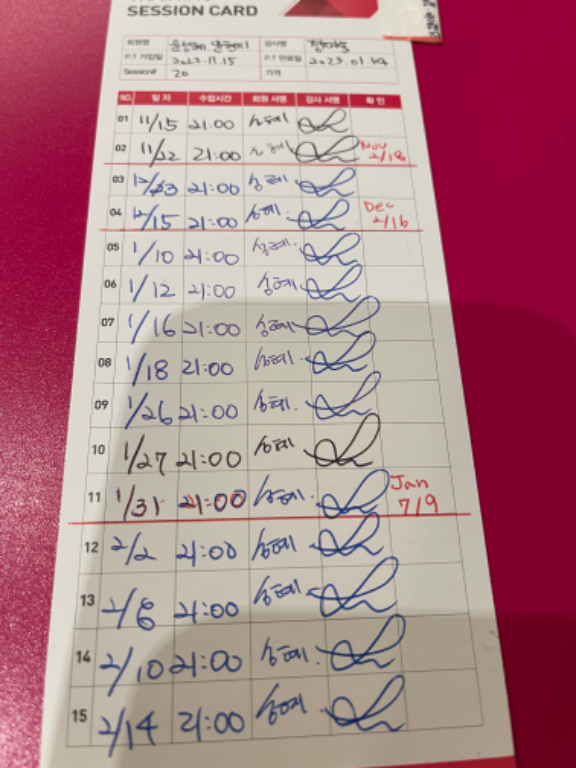 SESSION CARD
회원명 강사명
P.T 가입일 2022.11.15 P.T 만료일 2023.01.14
Session# 20 가격
NO. 일 자 수업시간 회원 서명 강사 서명 확 인
01 11/15 21:00 성혜
02 11/22 21:00 성혜 Nov 2/18
03 12/23 21:00 성혜
04 12/15 21:00 성혜 Dec 2/16
05 1/10 21:00 성혜
06 1/12 21:00 성혜
07 1/16 21:00 성혜
08 1/18 21:00 성혜
09 1/26 21:00 성혜
10 1/27 21:00 성혜
11 1/31 21:00 성혜 Jan 7/9
12 2/2 21:00 성혜
13 2/8 21:00 성혜
14 2/10 21:00 성혜
15 2/14 21:00 성혜